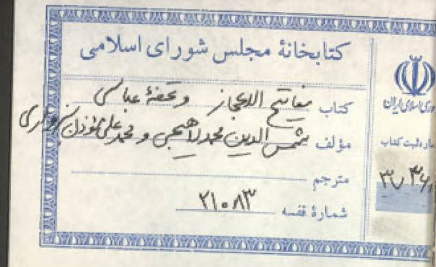 کتابخانهٔ مجلس شورای اسلامی
کتاب مفاتیح الاعجاز و تحفهٔ عباسی
مؤلف شمس الدین محمد لاهیجی و محمد علی مؤذن سبزواری
مترجم
شمارهٔ قفسه ۲۱۰۸۳
جمهوری اسلامی ایران
شماره ثبت کتاب